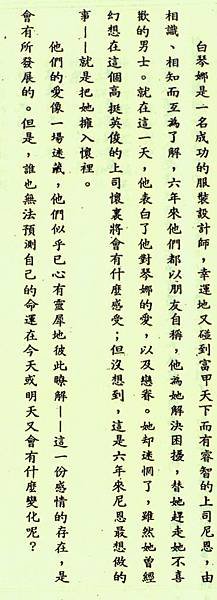 白琴娜是一名成功的服裝設計師，幸運地又碰到富甲天下而有睿智的上司尼恩，由
相識、相知而至為了解，六年來他們都以朋友自稱，他為她解決困擾，替她趕走她不喜
歡的男士。就在這一天，他表白了他對琴娜的愛，以及戀眷。她却迷惘了，雖然她曾經
幻想在這個高挺英俊的上司懷裏將會有什麼感受；但沒想到，這是六年來尼恩最想做的
事——就是把她擁入懷裡。
他們的愛像一場迷藏，他們似乎已心有靈犀地彼此瞭解——這一份感情的存在，是
會有所發展的。但是，誰也無法預測自己的命運在今天或明天又會有什麼變化呢？